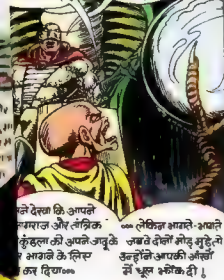 देखा कि आपने
और तांत्रिक
अपने जादू के
भागने के लिस
कर दिया•••
••• लेकिन भागते-भागते
जब वे दोनों मोड़ मुड़े, तो
उन्होंने आपकी आंखों
में धूल झोंक दी।